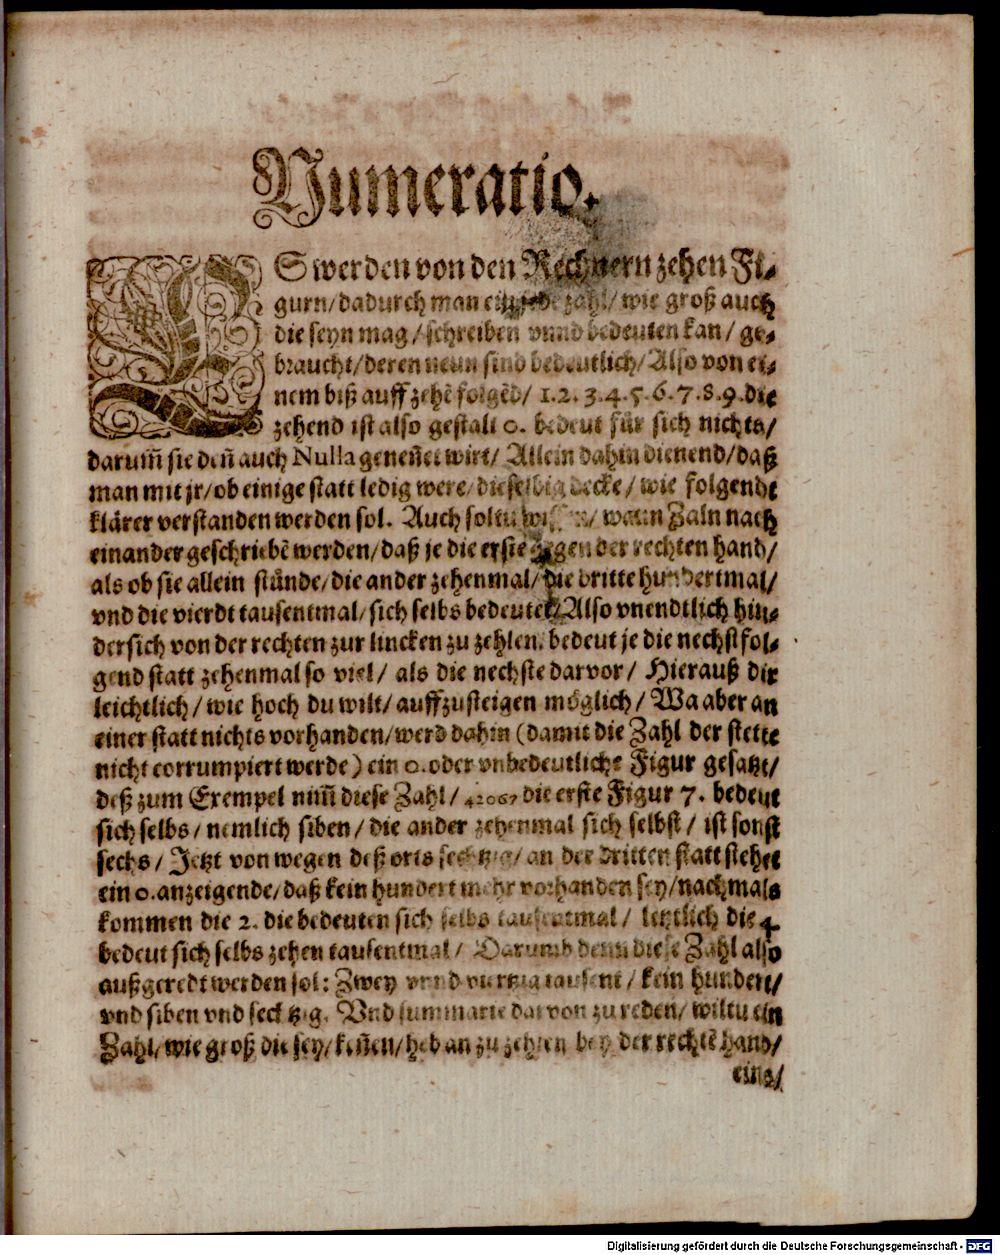 Numeratio.
ES werden von den Rechnern zehen Fi-
gurn/dadurch man ein jede zahl/wie groß auch
die seyn mag/schreiben vnnd bedeuten kan/ge-
braucht/deren neun sind bedeutlich/Also von ei-
nem biß auff zehẽ folgẽd/ 1.2.3.4.5.6.7.8.9.die
zehend ist also gestalt 0. bedeut für sich nichts/
darum̃ sie deñ auch Nulla geneñet wirt/ Allein dahin dienend/daß
man mit jr/ob einige statt ledig were/dieselbig decke/wie folgende
klärer verstanden werden sol. Auch soltu wissen/wann Zaln nach
einander geschriebẽ werden/daß je die erste gegen der rechten hand/
als ob sie allein stünde/die ander zehenmal/die dritte hundertmal/
vnd die vierdt tausentmal/sich selbs bedeutet/Also vnendtlich hin-
dersich von der rechten zur lincken zu zehlen, bedeut je die nechstfol-
gend statt zehenmal so viel/ als die nechste darvor/ Hierauß dir
leichtlich/wie hoch du wilt/auffzusteigen möglich/Wa aber an
einer statt nichts vorhanden/werd dahin (damit die Zahl der stette
nicht corrumpiert werde) ein 0.oder vnbedeutliche Figur gesatzt/
deß zum Exempel nim̃ diese Zahl/ 42067 die erste Figur 7. bedeut
sich selbs/nemlich siben/die ander zehenmal sich selbst/ ist sonst
sechs/ Jetzt von wegen deß orts sechtzig/an der dritten statt stehet
ein 0.anzeigende/daß kein hundert mehr vorhanden sey/nachmals
kommen die 2. die bedeuten sich selbs tausentmal/ letztlich die 4
bedeut sich selbs zehen tausentmal/ Darumb denn diese Zahl also
außgeredt werden sol: Zwey vnnd viertzig tausent/kein hundert/
vnd siben vnd sechtzig. Vnd summarie darvon zu reden/wiltu ein
Zahl/wie groß die sey/keñen/heb an zu zehlen bey der rechtẽ hand/
eins/
Digitalisierung gefördert durch die Deutsche Forschungsgemeinschaft - DFG